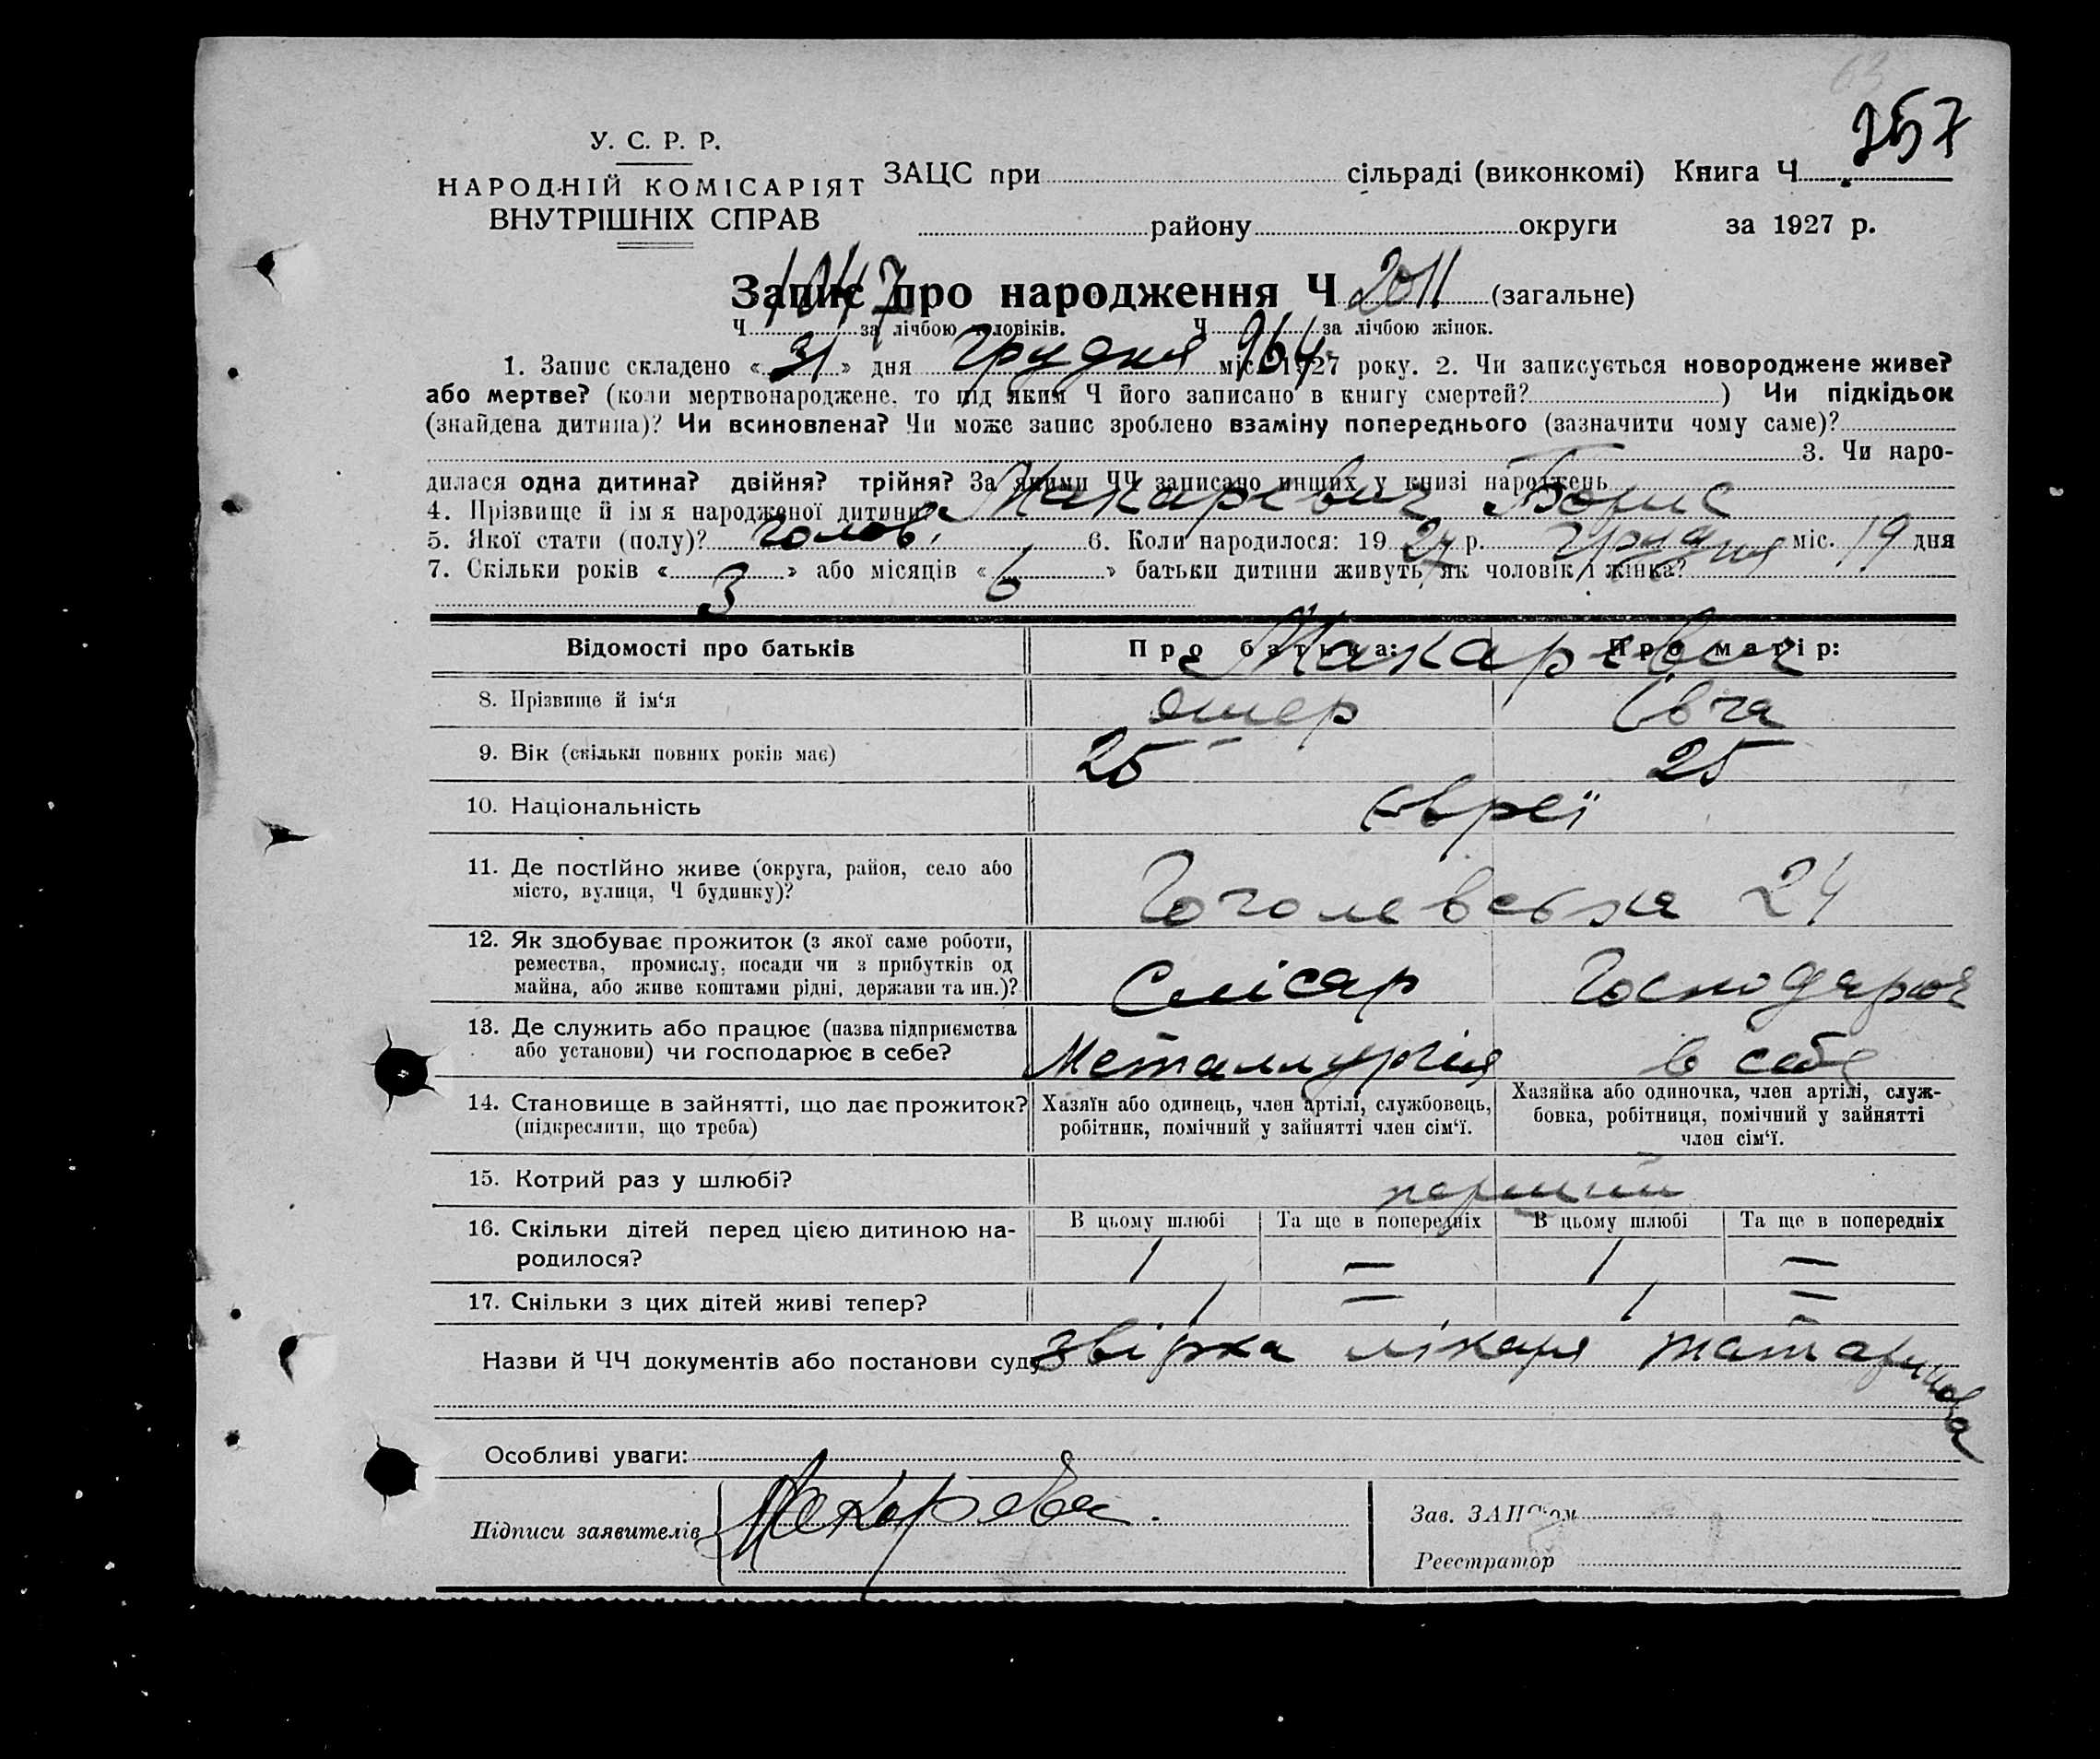 63
257
У. С. Р. Р.
НАРОДНІЙ КОМІСАРІЯТ
ВНУТРІШНІХ СПРАВ
ЗАЦС при сільраді (виконкомі) Книга Ч.
району округи за 1927 р.
Запис про народження Ч 2011 (загальне)
Ч 1047 за лічбою чоловіків. Ч 964 за лічбою жінок.
1. Запис складено «31» дня Грудня міс. 1927 року. 2. Чи записується новороджене живе?
або мертве? (коли мертвонароджене, то під яким Ч його записано в книгу смертей? ) Чи підкідьок
(знайдена дитина)? Чи всиновлена? Чи може запис зроблено взаміну попереднього (зазначити чому саме)?
3. Чи наро-
дилася одна дитина? двійня? трійня? За якими ЧЧ записано инших у книзі народжень
4. Прізвище й ім я народженої дитини? Макаревич Борис
5. Якої стати (полу)? Голов. 6. Коли народилося: 1927 р. Грудня міс. 19 дня
7. Скільки років «3» або місяців «6» батьки дитини живуть, як чоловік і жінка?
Відомості про батьків Про батька: Про матір:
Макаревич
8. Прізвище й ім‘я
9. Вік (скільки повних років має) 25 25
10. Національність Євреї
11. Де постійно живе (округа, район, село або
місто, вулиця, Ч будинку)? Гоголевська 24
12. Як здобуває прожиток (з якої саме роботи,
ремества, промислу, посади чи з прибутків од
майна, або живе коштами рідні, держави та ин.)? Слісар Господарює
13. Де служить або працює (назва підприємства
або установи) чи господарює в себе? Металлургія в себе
14. Становище в зайнятті, що дає прожиток?
(підкреслити, що треба)
Хазяїн або одинець, член артілі, службовець,
робітник, помічний у зайнятті член сім‘ї.
Хазяйка або одиночка, член артілі, служ-
бовка, робітниця, помічний у зайнятті
член сім‘ї.
15. Котрий раз у шлюбі? перший
16. Скільки дітей перед цією дитиною на-
родилося?
В цьому шлюбі Та ще в попередніх В цьому шлюбі Та ще в попередніх
1 — 1 —
17. Скільки з цих дітей живі тепер? 1 — 1 —
Назви й ЧЧ документів або постанови суду звірка лікаря Татаринова
Особливі уваги:
Підписи заявителів
Зав. ЗАЦСом
Реєстратор